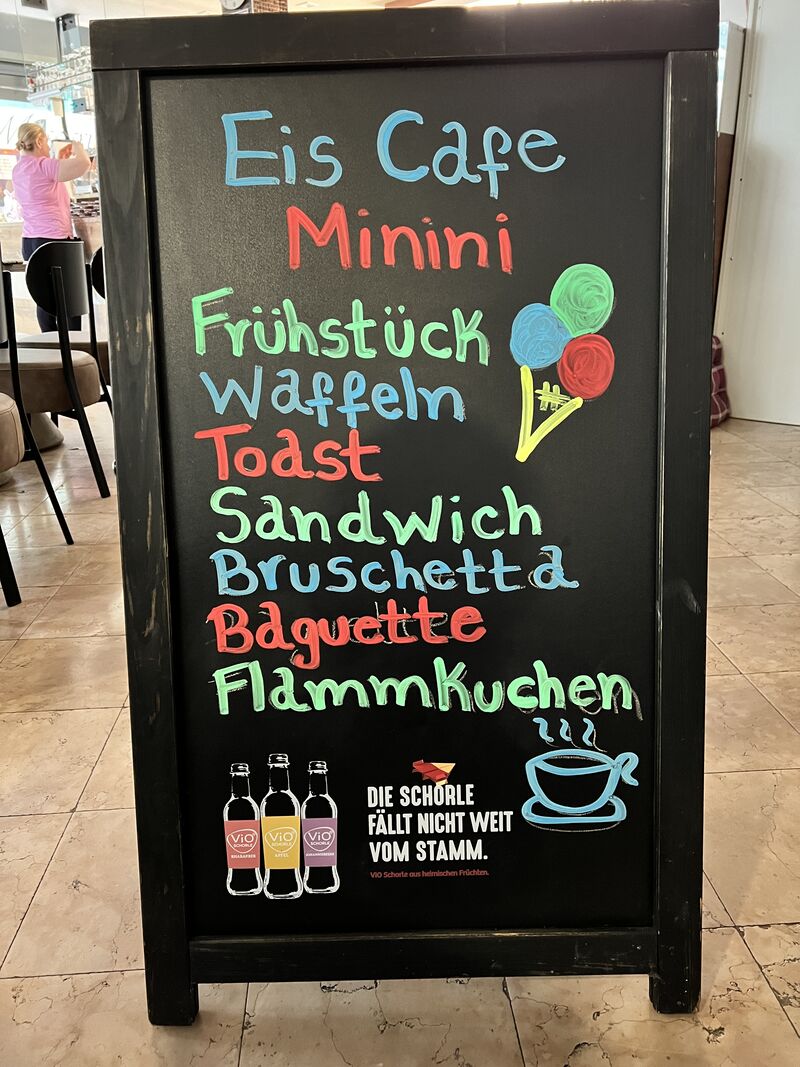 Eis Cafe
Minini
Frühstück
Waffeln
Toast
Sandwich
Bruschetta
Baguette
Flammkuchen
DIE SCHORLE
FÄLLT NICHT WEIT
VOM STAMM.
ViO Schorle aus heimischen Früchten.
ViO
SCHORLE
RHABARBER
ViO
SCHORLE
APFEL
ViO
SCHORLE
JOHANNISBEERE